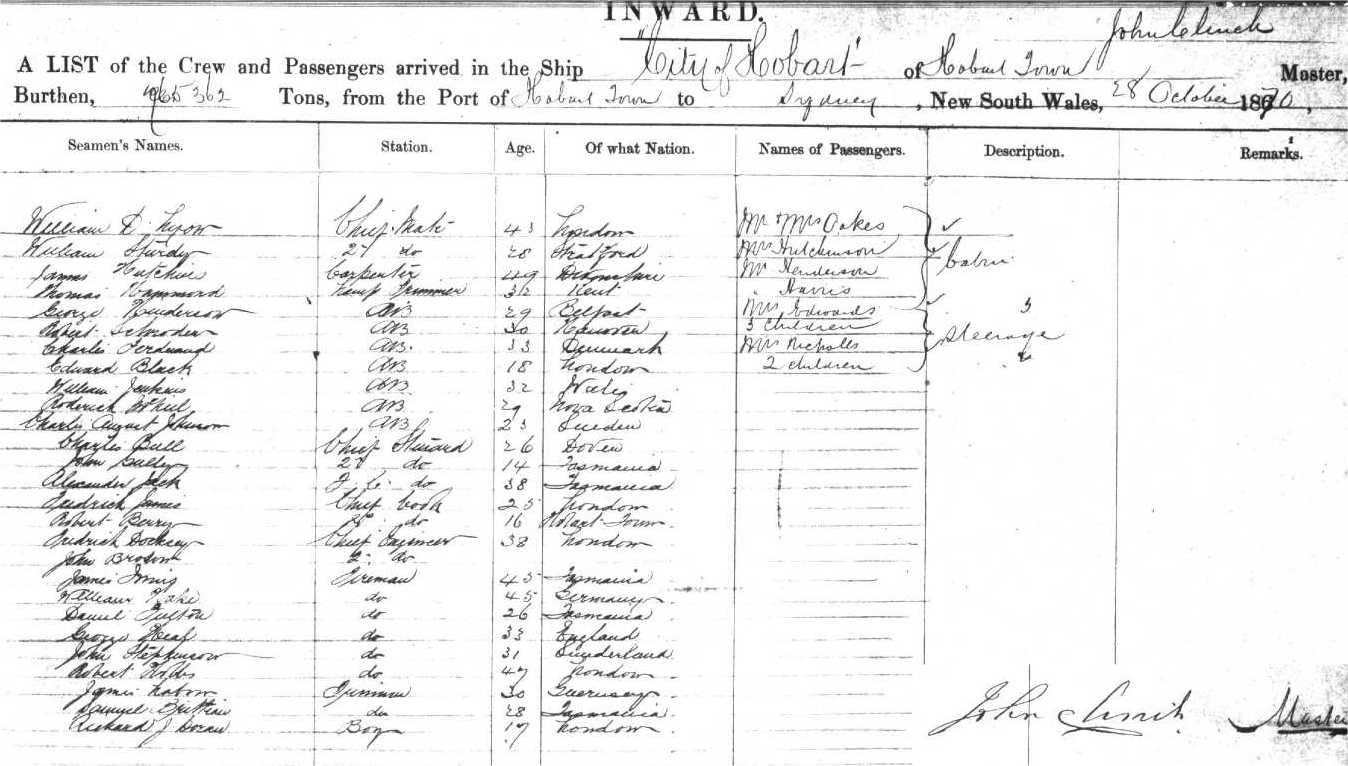 INWARD.
John Clinch
A LIST of the Crew and Passengers arrived in the Ship "City of Hobart" of Hobart Town Master,
Burthen, 362 Tons, from the Port of Hobart Town to Sydney, New South Wales, 28 October 1870,
Seamen's Names. Station. Age. Of what Nation. Names of Passengers. Description. Remarks.
William D. Chief Mate 43 London Mr & Mrs Oakes
William Sturdy 2d do 28 Stratford Mrs Hutchinson Cabin
James Carpenter 49 Devonshire Mr Henderson
Thomas Hammond Trimmer 32 Kent " Harris
George Henderson AB 29 Belfast Mrs Edwards 3
Robert Schroder AB 30 Hanover 3 children Steerage
Charles Ferdinand AB. 33 Denmark Mrs Nicholls
Edward Black AB 18 London 2 children
William Jenkins AB 32
Roderick AB 29 Nova Scotia
Charles August Johnson AB 23 Sweden
Charles Bull Chief Steward 26 Dover
John 2d do 14 Tasmania
Alexander Jack do 38 Tasmania
Fredrick James Chief Cook 25 London
Robert Berry do 16 Hobart Town
Fredrick Chief Engineer 38 London
John 2d do
James Fireman 45 Tasmania
William do 45 Germany
Daniel Fulton do 26 Tasmania
George Heaf do 33 England
John Stephenson do 31 Sunderland
Robert do 47 London
James Trimmer 30 Guernsey
Samuel Brittain do 28 Tasmania
Richard J Doran Boy 17 London
John Clinch Master